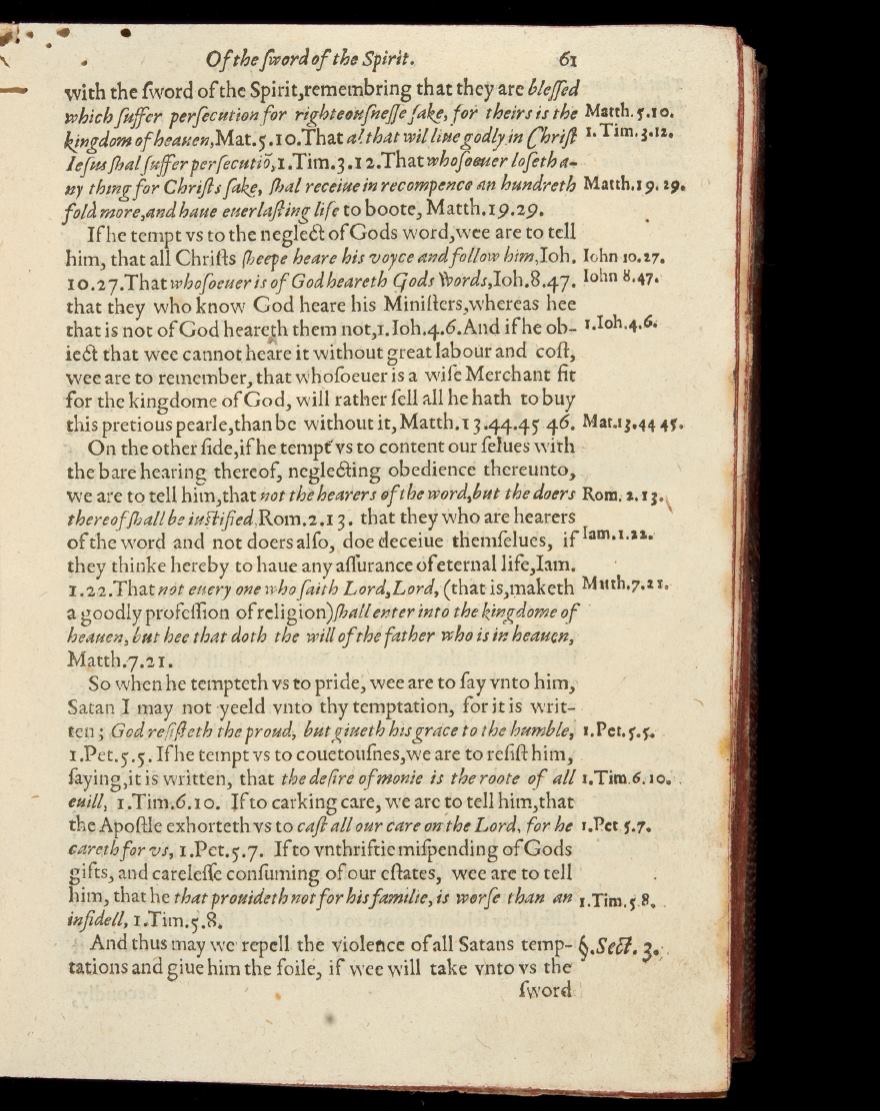 Of the ſword of the Spirit. 61
with the ſword of the Spirit,remembring that they are bleſſed
which ſuffer perſecution for righteouſneſſe ſake, for theirs is the Matth. 5.10.
kingdom of heauen,Mat.5.10.That al that will liue godly in Chriſt 1.Tim.3.12.
Ieſus ſhal ſuffer perſecutiō,1.Tim.3.12.That whoſoeuer loſeth a-
ny thing for Chriſts ſake, ſhal receiue in recompence an hundreth Matth.19.29.
fold more,and haue euerlaſting life to boote, Matth.19.29.
If he tempt vs to the neglect of Gods word,wee are to tell
him, that all Chriſts ſheepe heare his voyce and follow him,Ioh. Iohn 10.27.
10.27.That whoſoeuer is of God heareth Gods Words,Ioh.8.47. Iohn 8.47.
that they who know God heare his Miniſters,whereas hee
that is not of God heareth them not,1.Ioh.4.6.And if he ob- 1.Ioh.4.6.
iect that wee cannot heare it without great labour and coſt,
wee are to remember, that whoſoeuer is a wiſe Merchant fit
for the kingdome of God, will rather ſell all he hath to buy
this pretious pearle,than be without it, Matth.13.44.45 46. Mat.13.44 45.
On the other ſide,if he tempt vs to content our ſelues with
the bare hearing thereof, neglecting obedience thereunto,
we are to tell him,that not the hearers of the word,but the doers Rom. 2.13.
thereof ſhall be iuſtified,Rom.2.13. that they who are hearers
of the word and not doers alſo, doe deceiue themſelues, if Iam.1.22.
they thinke hereby to haue any aſſurance of eternal life,Iam.
1.22.That not euery one who ſaith Lord,Lord, (that is,maketh Matth.7.21.
a goodly profeſſion of religion)ſhall enter into the kingdome of
heauen, but hee that doth the will of the father who is in heauen,
Matth.7.21.
So when he tempteth vs to pride, wee are to ſay vnto him,
Satan I may not yeeld vnto thy temptation, for it is writ-
ten ; God reſiſteth the proud, but giueth his grace to the humble, 1.Pet.5.5.
1.Pet.5.5. If he tempt vs to couetouſnes,we are to reſiſt him,
ſaying,it is written, that the deſire of monie is the roote of all 1.Tim.6.10.
euill, 1.Tim.6.10. If to carking care, we are to tell him,that
the Apoſtle exhorteth vs to caſt all our care on the Lord, for he 1.Pet 5.7.
careth for vs, 1.Pet.5.7. If to vnthriftie miſpending of Gods
gifts, and careleſſe conſuming of our eſtates, wee are to tell
him, that he that prouideth not for his familie, is worſe than an 1.Tim.5.8.
infidell, 1.Tim.5.8.
And thus may we repell the violence of all Satans temp- §.Sect. 3.
tations and giue him the foile, if wee will take vnto vs the
ſword